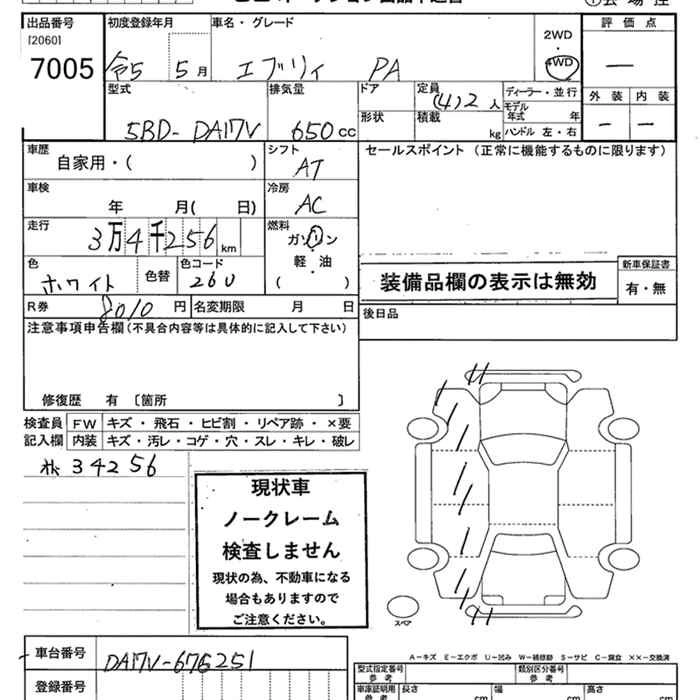 出品番号
[2060]
7005
初度登録年月
令5 5月
車名・グレード
エブリィ PA
2WD
4WD
評価点
—
型式
5BD-DA17V
排気量
650cc
ドア
定員
(4)2人
ディーラー・並行
形状
積載
kg
モデル年式 年
ハンドル 左・右
外装 内装
— —
車歴
自家用・( )
シフト
AT
セールスポイント (正常に機能するものに限ります)
車検
年 月( 日)
冷房
AC
走行
3万4千256km
燃料
ガソリン
軽・油
( )
色
ホワイト
色替
色コード
26U
装備品欄の表示は無効
新車保証書
有・無
R券
8010円
名変期限 月 日
後日品
注意事項申告欄(不具合内容等は具体的に記入して下さい)
修復歴 有 [箇所 ]
検査員記入欄
FW キズ・飛石・ヒビ割・リペア跡・×要
内装 キズ・汚レ・コゲ・穴・スレ・キレ・破レ
34256
現状車
ノークレーム
検査しません
現状の為、不動車になる
場合もありますので
ご注意ください。
スペア
A-キズ E-エクボ U-凹み W-補修跡 S-サビ C-腐食 ××-交換済
車台番号
DA17V-676251
登録番号
型式指定番号参考
類別区分番号参考
車庫証明用参考
長さ cm
幅 cm
高さ cm